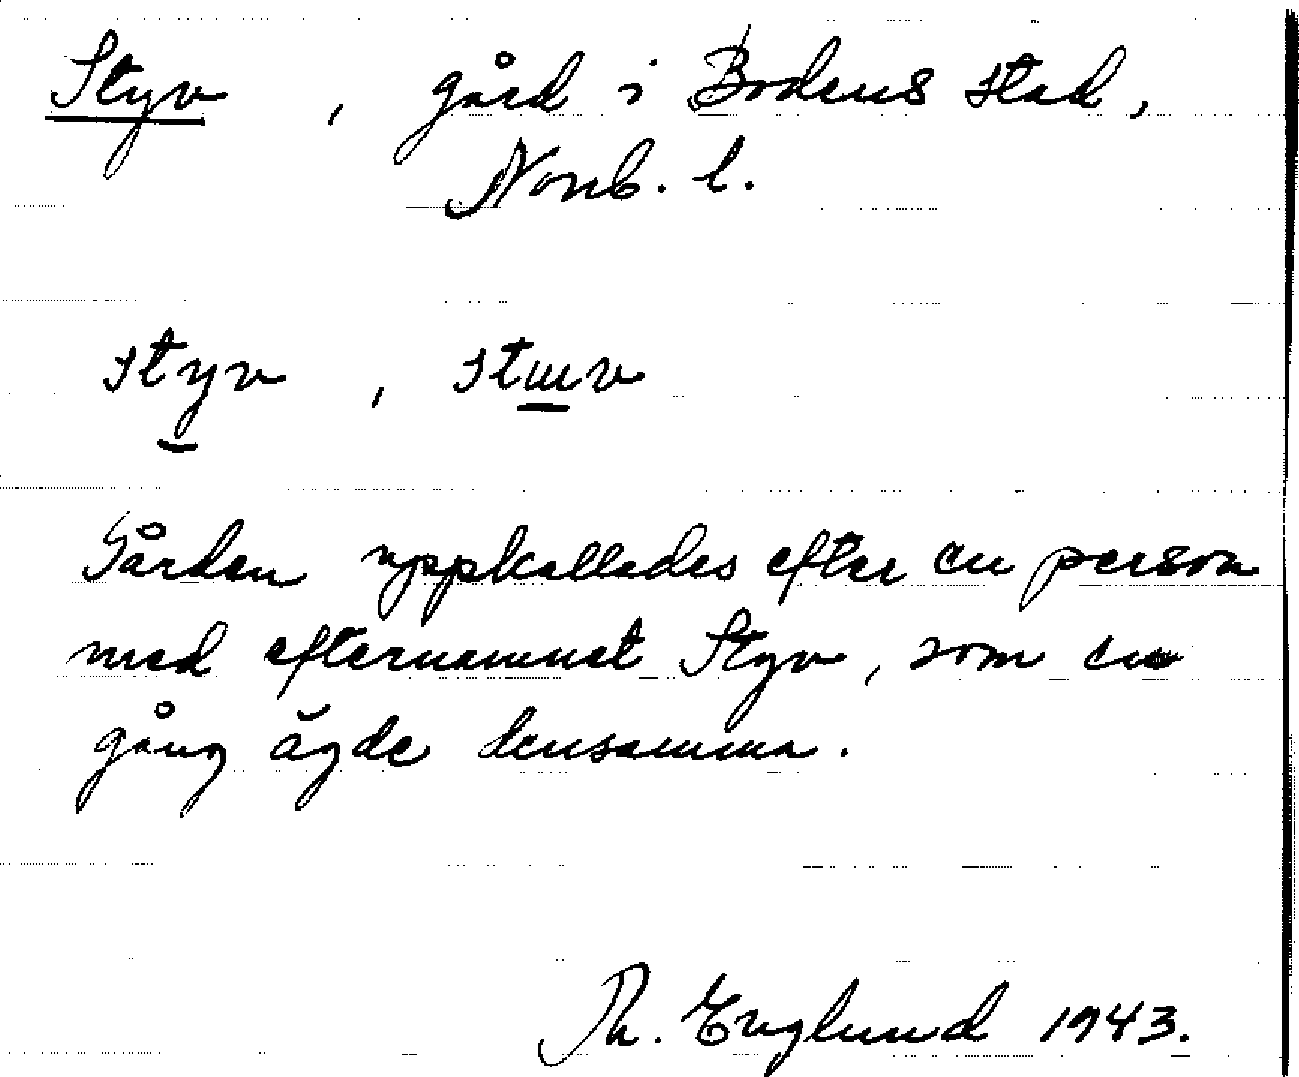 Styv, gård i Bodens stad,
Norrb. l.
styv, stɯv
Gården uppkallades efter en person
med efternamnet Styv, som en
gång ägde densamma.
Th. Englund 1943.